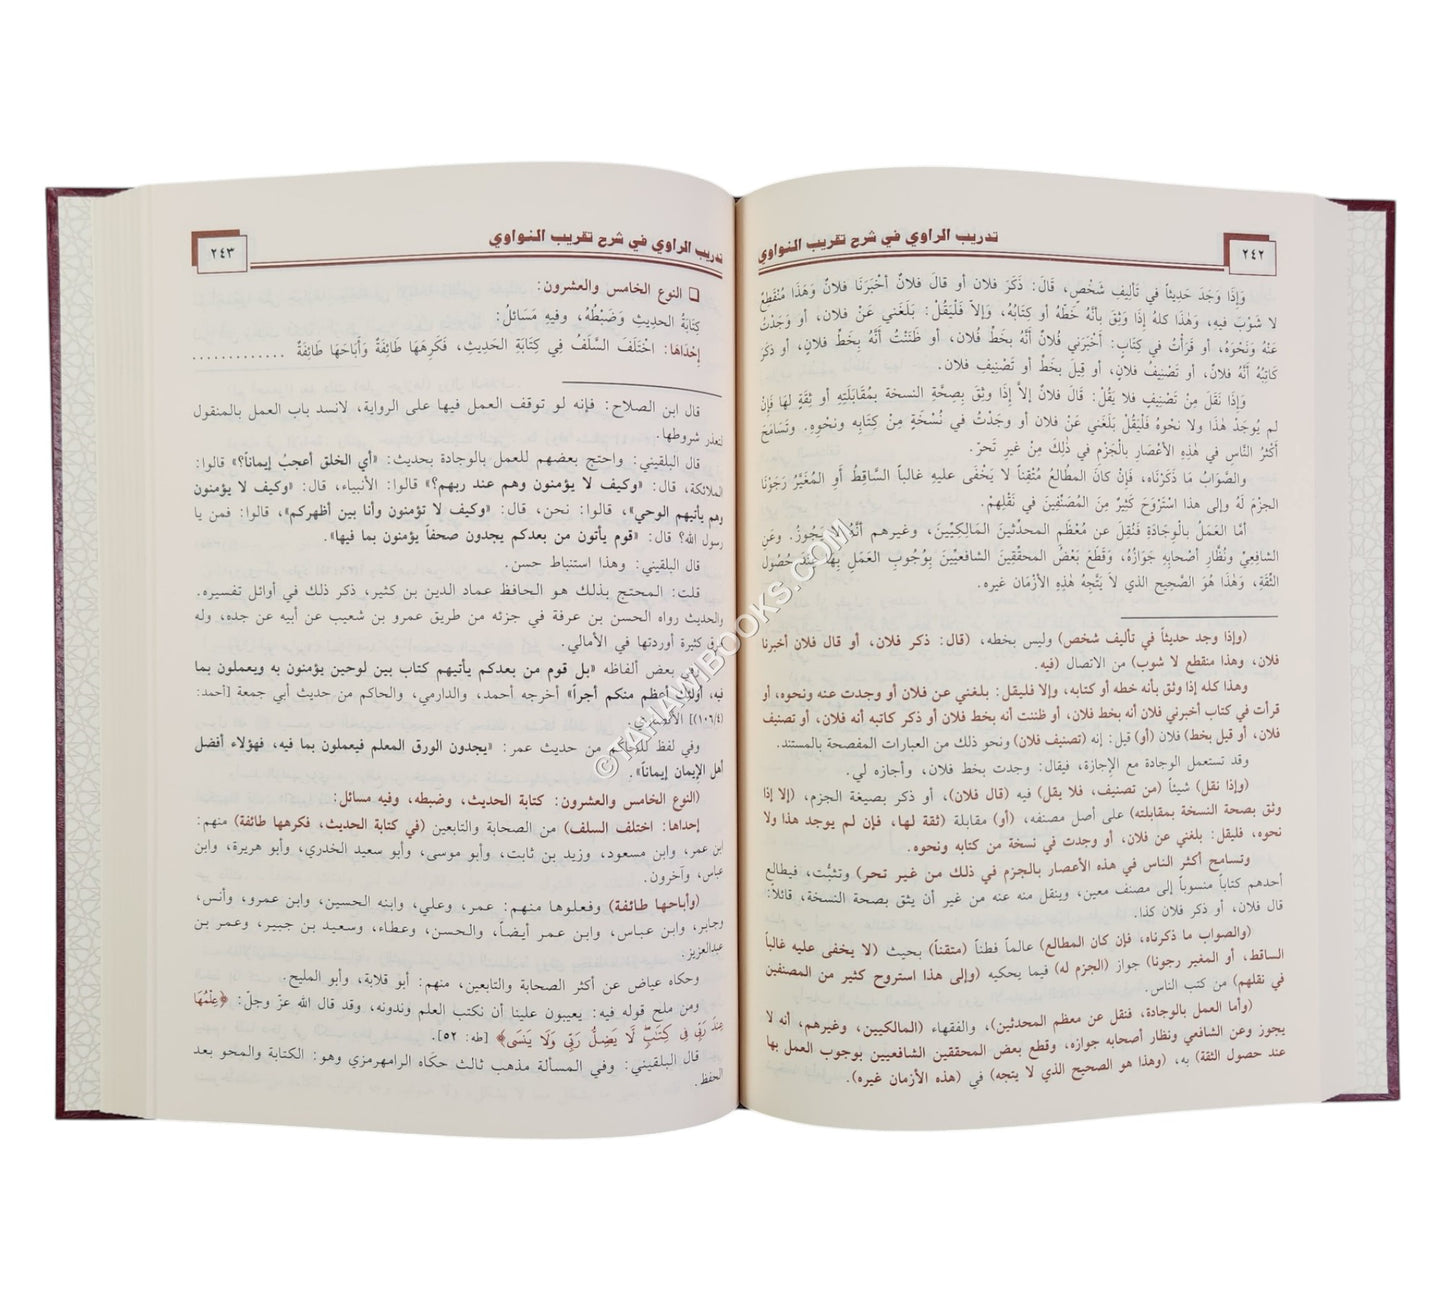 تدريب الراوي في شرح تقريب النواوي
٢٤٢
وَإِذَا وَجَدَ حَدِيثاً في تَأْلِيفِ شَخْصٍ، قَالَ: ذَكَرَ فلان أو قالَ فلانٌ أخْبَرَنَا فلانٌ وَهَذَا مُنْقَطِعٌ
لا شَوْبَ فيهِ، وَهٰذَا كلهُ إذَا وَثِقَ بأنَّهُ خَطُّه أو كِتَابُهُ، وَإلاّ فَلْيَقُلْ: بَلَغَني عَنْ فلان، أو وَجَدْتُ
عَنْهُ وَنَحْوَهُ، أو قَرَأتُ في كِتَابٍ: أخْبَرَني فُلانٌ أنَّهُ بخَطِّ فُلان، أو ظَنَنْتُ أنَّهُ بِخَطِّ فلانٍ، أو ذكرَ
كَاتِبُهُ أنَّهُ فلانٌ، أو تَصْنِيفُ فلانٍ، أو قِيلَ بخَطِّ أو تَصْنِيفِ فلان.
وَإِذَا نَقَلَ مِنْ تَصْنِيفٍ فلا يَقُلْ: قَالَ فلانٌ إلاَّ إذَا وثِقَ بِصِحَّةِ النسخة بمُقَابَلَتِهِ أو ثِقَةٍ لهَا فَإنْ
لم يُوجَدْ هٰذَا ولا نحوهُ فَلْيَقُلْ بَلَغَني عَنْ فلان أو وجَدْتُ في نُسْخَةٍ مِنْ كِتَابِه ونحْوهِ. وتَسَامَحَ
أكْثَرُ النَّاسِ في هٰذِهِ الأعْصَارِ بالْجَزْمِ في ذٰلِكَ مِنْ غيرِ تَحرّ.
والصَّوَابُ مَا ذَكَرْنَاه، فَإنْ كانَ المُطَالِعُ مُتْقِناً لا يَخْفَى عليهِ غالباً السَّاقِطُ أَوِ المُغَيَّرُ رَجَوْنَا
الجزمَ لهُ وإلى هذا اسْتَرْوَحَ كَثِيرٌ مِنَ المُصَنِّفِينَ في نَقْلِهِمْ.
أمَّا العَمَلُ بالْوِجَادَةِ فَنُقِلَ عن مُعْظَمِ المحدِّثينَ المَالِكِيِّينَ، وغيرهم أنَّهُ لا يَجُوزُ. وعَنِ
الشافِعيِّ ونُظَّارِ أصْحَابِهِ جَوَازُهُ، وَقَطَعَ بَعْضُ المحقِّقِينَ الشافعِيِّينَ بوُجُوبِ العَمَلِ بِهَا عِنْدَ حُصُولِ
الثِّقَةِ، وَهٰذَا هُوَ الصَّحِيح الذي لا يَتَّجِهُ هٰذِهِ الأزْمان غيره.
(وإذا وجد حديثاً في تأليف شخص) وليس بخطه، (قال: ذكر فلان، أو قال فلان أخبرنا
فلان، وهذا منقطع لا شوب) من الاتصال (فيه.
وهذا كله إذا وثق بأنه خطه أو كتابه، وإلا فليقل: بلغني عن فلان أو وجدت عنه ونحوه، أو
قرأت في كتاب أخبرني فلان أنه بخط فلان، أو ظننت أنه بخط فلان أو ذكر كاتبه أنه فلان، أو تصنيف
فلان، أو قيل بخط) فلان (أو) قيل: إنه (تصنيف فلان) ونحو ذلك من العبارات المفصحة بالمستند.
وقد تستعمل الوجادة مع الإجازة، فيقال: وجدت بخط فلان، وأجازه لي.
(وإذا نقل) شيئاً (من تصنيف، فلا يقل) فيه (قال فلان)، أو ذكر بصيغة الجزم، (إلا إذا
وثق بصحة النسخة بمقابلته) على أصل مصنفه، (أو) مقابلة (ثقة لها، فإن لم يوجد هذا ولا
نحوه، فليقل: بلغني عن فلان، أو وجدت في نسخة من كتابه ونحوه.
وتسامح أكثر الناس في هذه الأعصار بالجزم في ذلك من غير تحر) وتثبُّت، فيطالع
أحدهم كتاباً منسوباً إلى مصنف معين، وينقل منه عنه من غير أن يثق بصحة النسخة، قائلاً:
قال فلان، أو ذكر فلان كذا.
(والصواب ما ذكرناه، فإن كان المطالع) عالماً فطناً (متقناً) بحيث (لا يخفى عليه غالباً
الساقط، أو المغير رجونا) جواز (الجزم له) فيما يحكيه (وإلى هذا استروح كثير من المصنفين
في نقلهم) من كتب الناس.
(وأما العمل بالوجادة، فنقل عن معظم المحدثين)، والفقهاء (المالكيين، وغيرهم، أنه لا
يجوز وعن الشافعي ونظار أصحابه جوازه، وقطع بعض المحققين الشافعيين بوجوب العمل بها
عند حصول الثقة) به، (وهذا هو الصحيح الذي لا يتجه) في (هذه الأزمان غيره).
تدريب الراوي في شرح تقريب النواوي
٢٤٣
❏ النوع الخامس والعشرون:
كِتَابَةُ الحديثِ وَضَبْطُهُ، وفيهِ مَسَائلُ:
إحْدَاهَا: اخْتَلَفَ السَّلَفُ فِي كِتَابَةِ الحَدِيثِ، فَكَرِهَهَا طَائِفَةٌ وَأَبَاحَهَا طَائِفَةٌ .............
قال ابن الصلاح: فإنه لو توقف العمل فيها على الرواية، لانسد باب العمل بالمنقول
لتعذر شروطها.
قال البلقيني: واحتج بعضهم للعمل بالوجادة بحديث: «أي الخلق أعجبُ إيماناً؟» قالوا:
الملائكة، قال: «وكيف لا يؤمنون وهم عند ربهم؟» قالوا: الأنبياء، قال: «وكيف لا يؤمنون
وهم يأتيهم الوحي»، قالوا: نحن، قال: «وكيف لا تؤمنون وأنا بين أظهركم»، قالوا: فمن يا
رسول الله؟ قال: «قوم يأتون من بعدكم يجدون صحفاً يؤمنون بما فيها».
قال البلقيني: وهذا استنباط حسن.
قلت: المحتج بذلك هو الحافظ عماد الدين بن كثير، ذكر ذلك في أوائل تفسيره.
والحديث رواه الحسن بن عرفة في جزئه من طريق عمرو بن شعيب عن أبيه عن جده، وله
طرق كثيرة أوردتها في الأمالي.
وفي بعض ألفاظه «بل قوم من بعدكم يأتيهم كتاب بين لوحين يؤمنون به ويعملون بما
فيه، أولئك أعظم منكم أجراً» أخرجه أحمد، والدارمي، والحاكم من حديث أبي جمعة [أحمد:
(١٠٦/٤)] الأنصاري.
وفي لفظ للحاكم من حديث عمر: «يجدون الورق المعلم فيعملون بما فيه، فهؤلاء أفضل
أهل الإيمان إيماناً».
(النوع الخامس والعشرون: كتابة الحديث، وضبطه، وفيه مسائل:
إحداها: اختلف السلف) من الصحابة والتابعين (في كتابة الحديث، فكرهها طائفة) منهم:
ابن عمر، وابن مسعود، وزيد بن ثابت، وأبو موسى، وأبو سعيد الخدري، وأبو هريرة، وابن
عباس، وآخرون.
(وأباحها طائفة) وفعلوها منهم: عمر، وعلي، وابنه الحسين، وابن عمرو، وأنس،
وجابر، وابن عباس، وابن عمر أيضاً، والحسن، وعطاء، وسعيد بن جبير، وعمر بن
عبدالعزيز.
وحكاه عياض عن أكثر الصحابة والتابعين، منهم: أبو قلابة، وأبو المليح.
ومن ملح قوله فيه: يعيبون علينا أن نكتب العلم وندونه، وقد قال الله عزّ وجلّ: ﴿عِلْمُهَا
عِندَ رَبِّى فِى كِتَٰبٍ لَّا يَضِلُّ رَبِّى وَلَا يَنسَى﴾ [طه: ٥٢].
قال البلقيني: وفي المسألة مذهب ثالث حكاه الرامهرمزي وهو: الكتابة والمحو بعد
الحفظ.
©TAHAWIBOOKS.COM